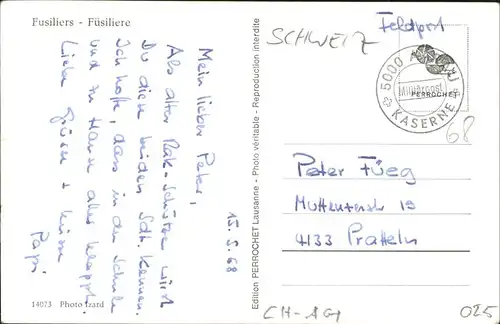 Fusiliers - Füsiliere
15.5.68
Mein lieber Peter,
Als alter Rak-Schütze wirst
Du diese beiden Sdt. kennen.
Ich hoffe, dass in der Schule
und zu Hause alles klappt.
Liebe Grüsse + Küsse
Papi
14073 Photo Izard
Edition PERROCHET Lausanne - Photo véritable - Reproduction interdite
SCHWEIZ
Feldpost
5000 AARAU
Militärpost
KASERNE
PERROCHET
68
Peter Füeg
Muttenzerstr 19
4133 Pratteln
CH-AG
025